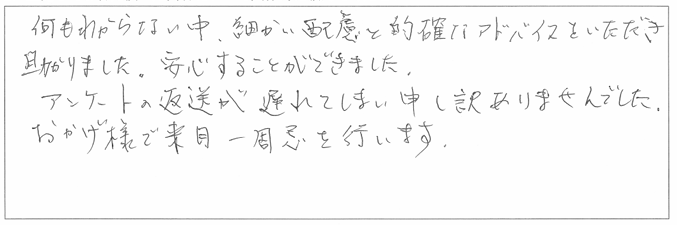 何もわからない中、細かい配慮と的確なアドバイスをいただき
助かりました。安心することができました。
アンケートの返送が遅れてしまい申し訳ありませんでした。
おかげ様で来月一周忌を行います。